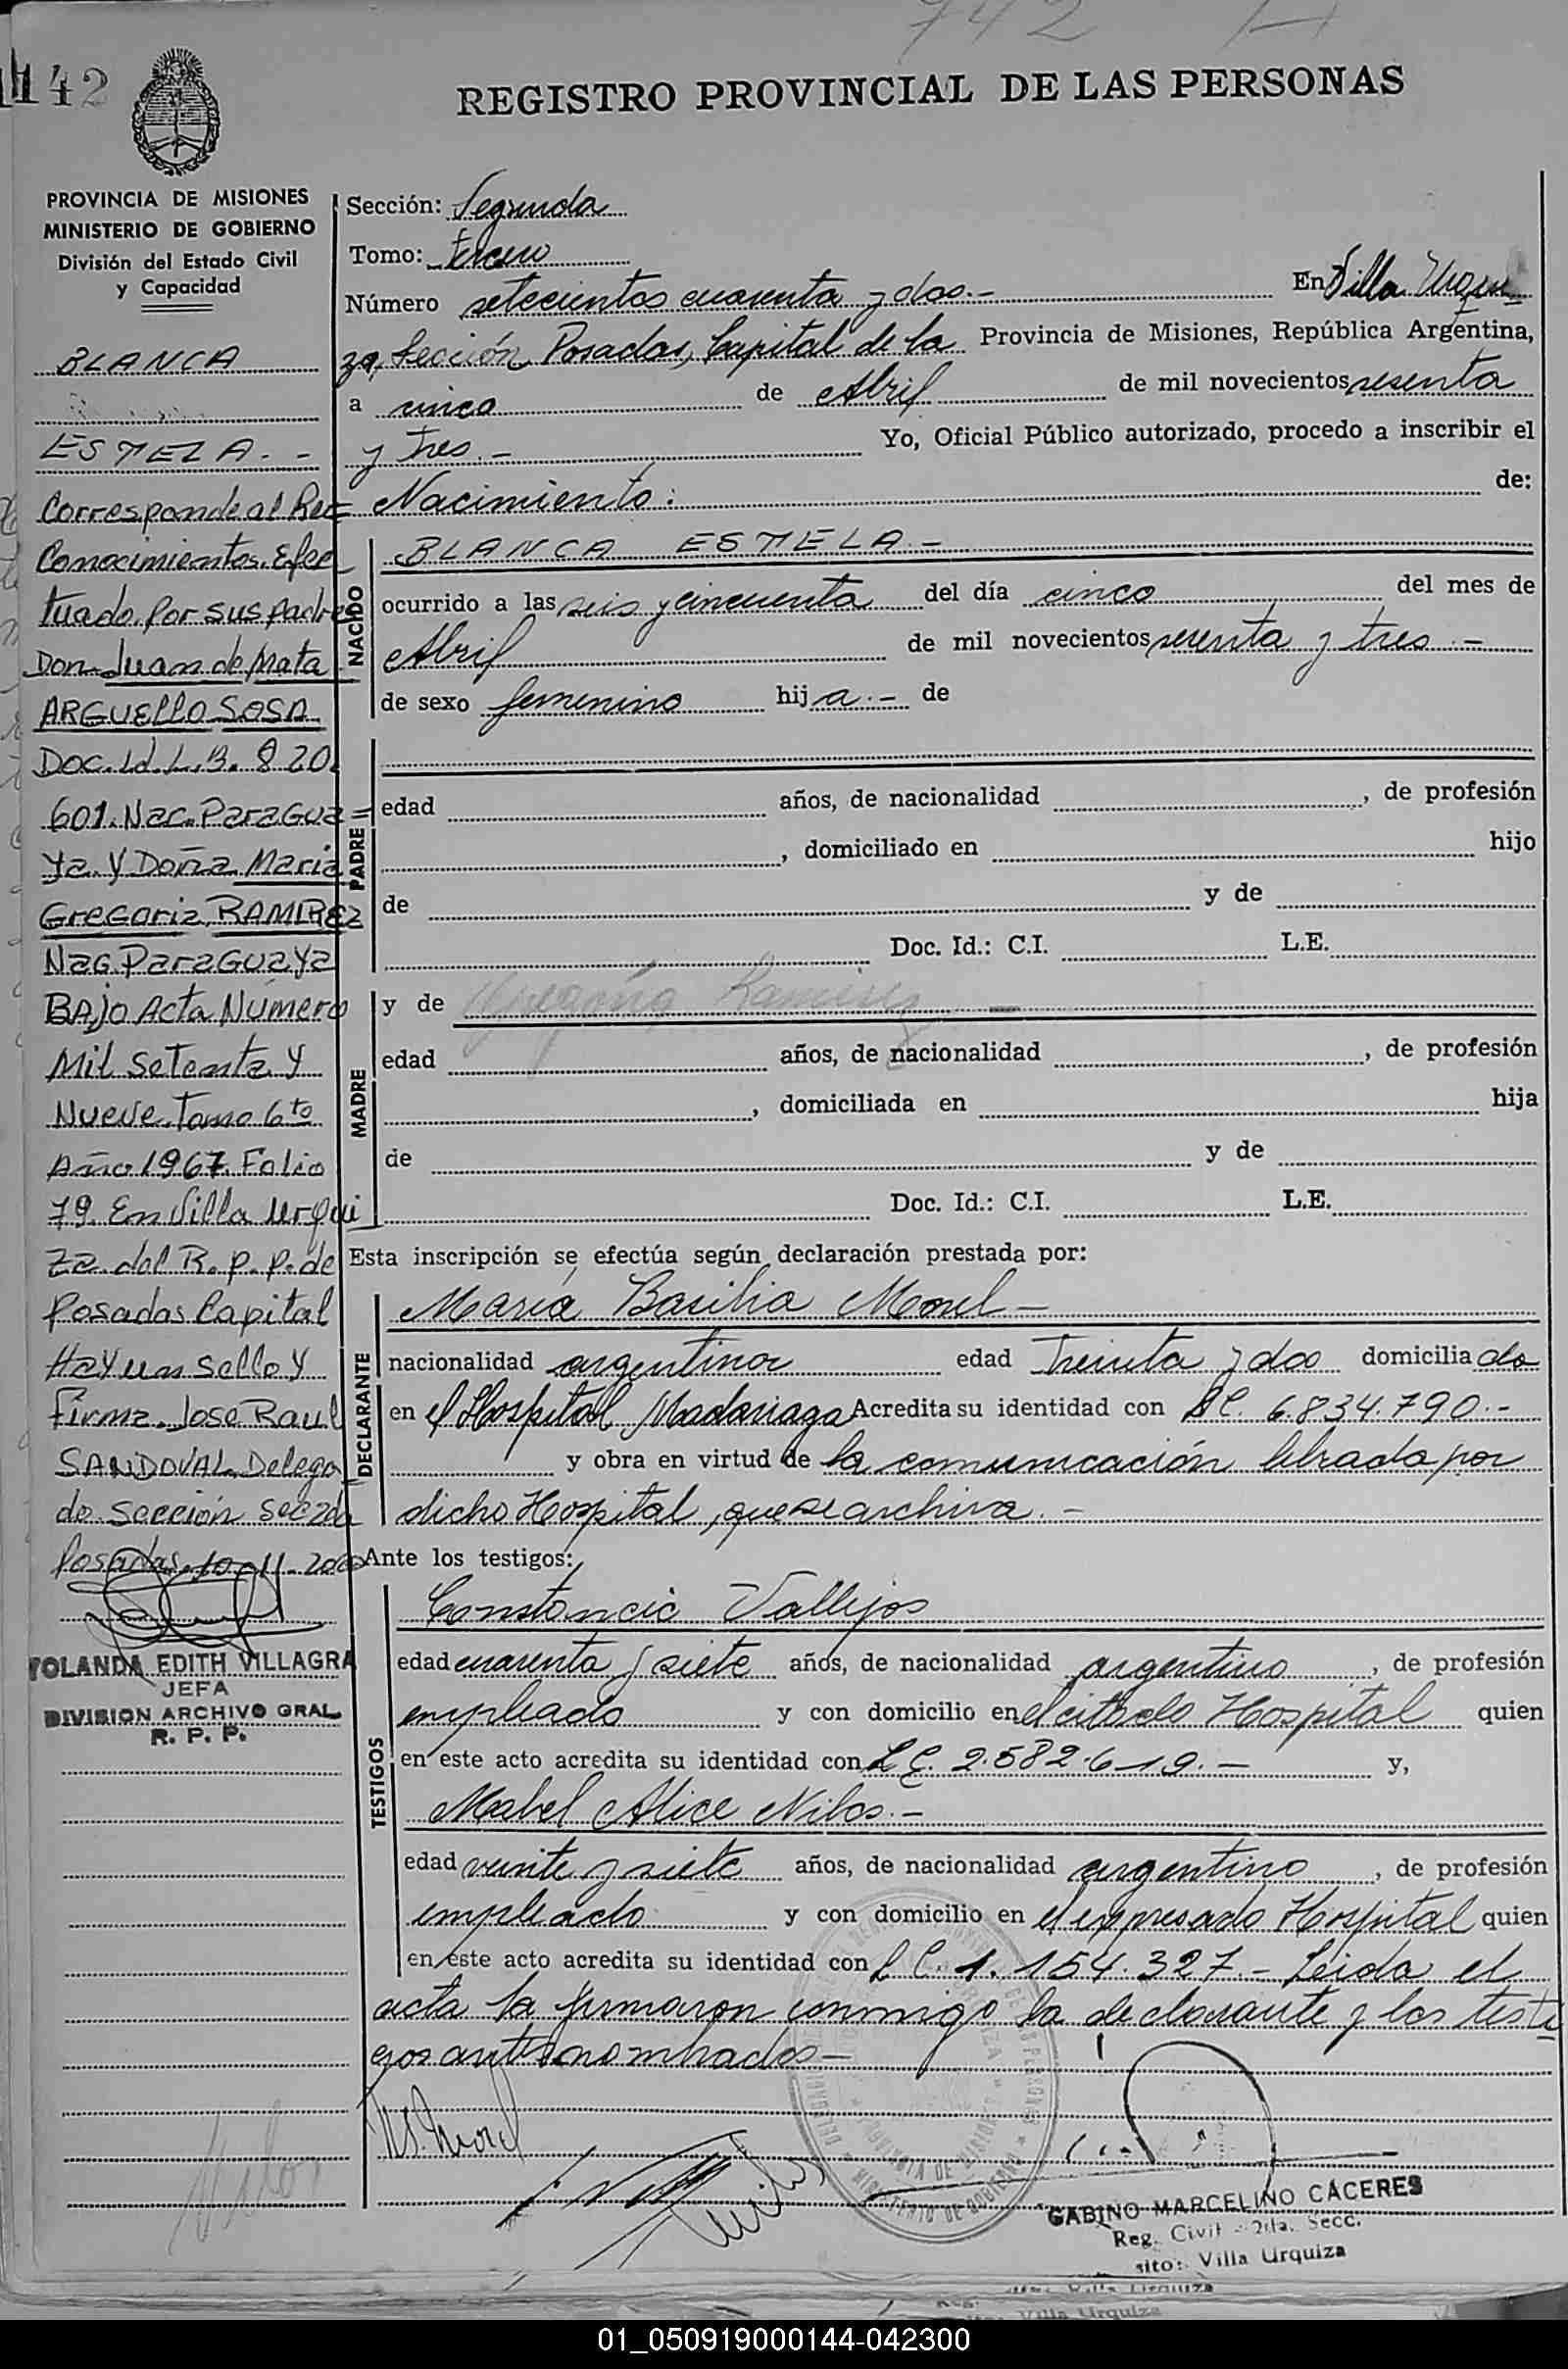 742
1142
REGISTRO PROVINCIAL DE LAS PERSONAS
PROVINCIA DE MISIONES
MINISTERIO DE GOBIERNO
División del Estado Civil
y Capacidad
BLANCA
ESTELA.-
Corresponde al Re=
Conocimientos. Efec
tuado. por sus padres
Don. Juan de Mata
ARGUELLO SOSA
Doc. Id. L.B. 820.
601. Nac. Paragua=
ya. y Doña Maria
Gregoria RAMIREZ
Nac. Paraguaya
BAJO Acta Número
Mil setenta y
Nueve. Tomo 6to
Año 1967. Folio
79. En Villa Urqui
za del R.p.p. de
Posadas Capital
Hay un sello y
firma. Jose Raul
SANDOVAL Delega
do. Sección
Posadas
YOLANDA EDITH VILLAGRA
JEFA
DIVISION ARCHIVO GRAL
R. P. P.
Sección: Segunda
Tomo: tercero
Número setecientos cuarenta y dos.- En Villa Urqui
za, Sección Posadas, Capital de la Provincia de Misiones, República Argentina,
a cinco de Abril de mil novecientos sesenta
y tres.- Yo, Oficial Público autorizado, procedo a inscribir el
Nacimiento: de:
NACIDO
BLANCA ESTELA.-
ocurrido a las seis y cincuenta del día cinco del mes de
Abril de mil novecientos sesenta y tres.-
de sexo femenino hij a.- de
PADRE
edad años, de nacionalidad , de profesión
, domiciliado en hijo
de y de
Doc. Id.: C.I. L.E.
MADRE
y de Gregoria Ramirez
edad años, de nacionalidad , de profesión
, domiciliada en hija
de y de
Doc. Id.: C.I. L.E.
Esta inscripción se efectúa según declaración prestada por:
DECLARANTE
María Basilia Morel-
nacionalidad argentina edad treinta y dos domicilia da
en el Hospital Madariaga Acredita su identidad con LC. 6.834.790.-
y obra en virtud de la comunicación librada por
dicho Hospital, que se archiva.-
Ante los testigos:
TESTIGOS
Constancio Vallejos
edad cuarenta y siete años, de nacionalidad argentino , de profesión
empleado y con domicilio en el citado Hospital quien
en este acto acredita su identidad con L.E. 2.582.619.- y,
Mabel Alice Nilos.-
edad veinte y siete años, de nacionalidad argentino , de profesión
empleado y con domicilio en el expresado Hospital quien
en este acto acredita su identidad con L C. 1.154.327.- Leida el
acta la firmaron conmigo la declarante y los testi
gos antes nombrados-
GABINO MARCELINO CACERES
Reg. Civil 2da. Secc.
sito: Villa Urquiza
Villa Urquiza
01_050919000144-042300